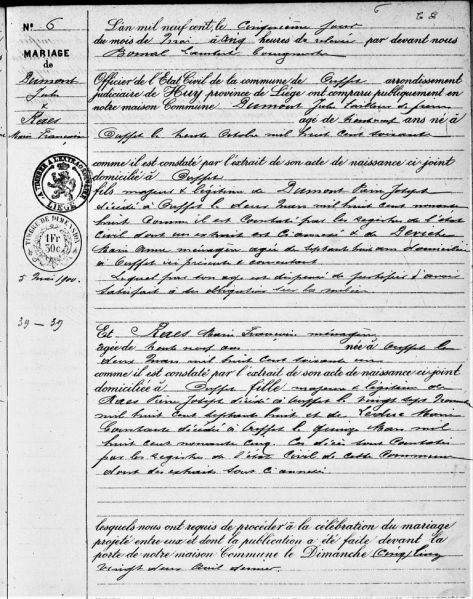 6
N° 6
MARIAGE
de
Dumont
Jules
&
Raes
Marie Françoise
TIMBRE A L'EXTRAORDINAIRE
LIÉGE
TIMBRE DE DIMENSION
1Fr
30c
5 mai 1900.
39 - 39
L'an mil neuf cent, le cinquième jour
du mois de Mai, à cinq heures de relevée par devant nous
Bomal Lambert
Officier de l'Etat Civil de la commune de Ouffet arrondissement
judiciaire de Huy province de Liége ont comparu publiquement en
notre maison Commune Dumont Jules
âgé de trente neuf ans né à
Ouffet le trente Octobre mil huit cent soixante
comme il est constaté par l'extrait de son acte de naissance ci-joint
domicilié à Ouffet
fils majeur & légitime de Dumont Pierre Joseph
décédé à Ouffet le deux Mars mil huit cent nonante
huit comme il est constaté par les registres de l'état
civil dont un extrait est ci annexé & de
Marie Anne ménagère âgée de septante huit ans domiciliée
à Ouffet ici présente & consentant
Lequel par son age est dispensé de justifier d'avoir
satisfait à ses obligations sur la milice
Et Raes Marie Françoise ménagère
âgée de trente neuf ans née à Ouffet le
deux Mars mil huit cent soixante un
comme il est constaté par l'extrait de son acte de naissance ci-joint
domiciliée à Ouffet fille majeure & légitime de
Raes Pierre Joseph décédé à Ouffet le vingt sept
mil huit cent septante huit et de Marie
Constante décédée à Ouffet le quinze Mars mil
huit cent nonante cinq. Ces décès sont constatés
par les registres de l'état Civil de cette Commune
dont des extraits sont ci annexés
lesquels nous ont requis de procéder à la célébration du mariage
projeté entre eux et dont la publication a été faite devant la
porte de notre maison Commune le Dimanche
vingt deux Avril dernier.